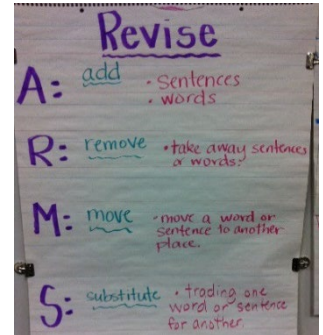 Revise
A: add • Sentences
• words
R: remove • take away sentences
or words.
M: move • move a word or
sentence to another
place.
S: substitute • trading one
word or sentence
for another.